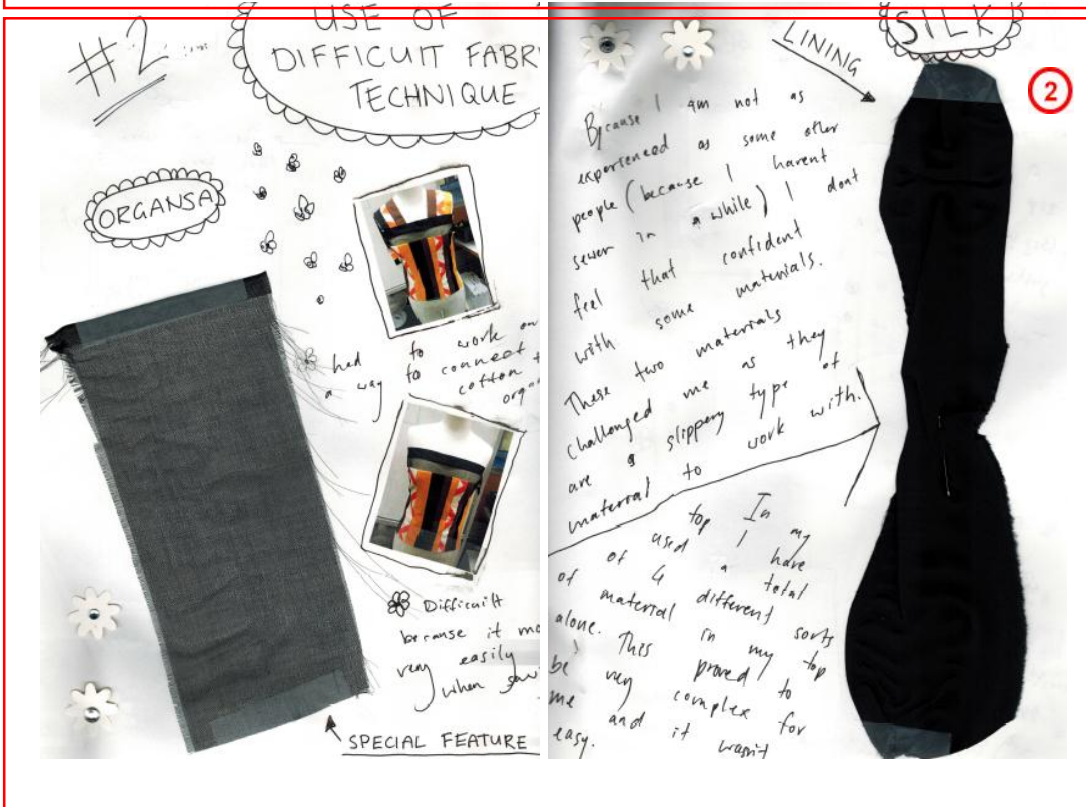 #2
USE OF
DIFFICUIT FABR
TECHNIQUE
ORGANSA
had to work on
a way to connect
cotton t
orga
Difficuilt
because it mo
very easily
when sew
SPECIAL FEATURE
SILK
LINING
2
Because I am not as
experienced as some other
people (because I havent
sewen in a while) I dont
feel that confident
with some materials.
These two materials
challenged me as they
are a slippery type of
material to work with.
In my
top I have
of used a total
of 4 different sorts
of material in my top
alone. This proved to
be very complex for
me and it wasn't
easy.